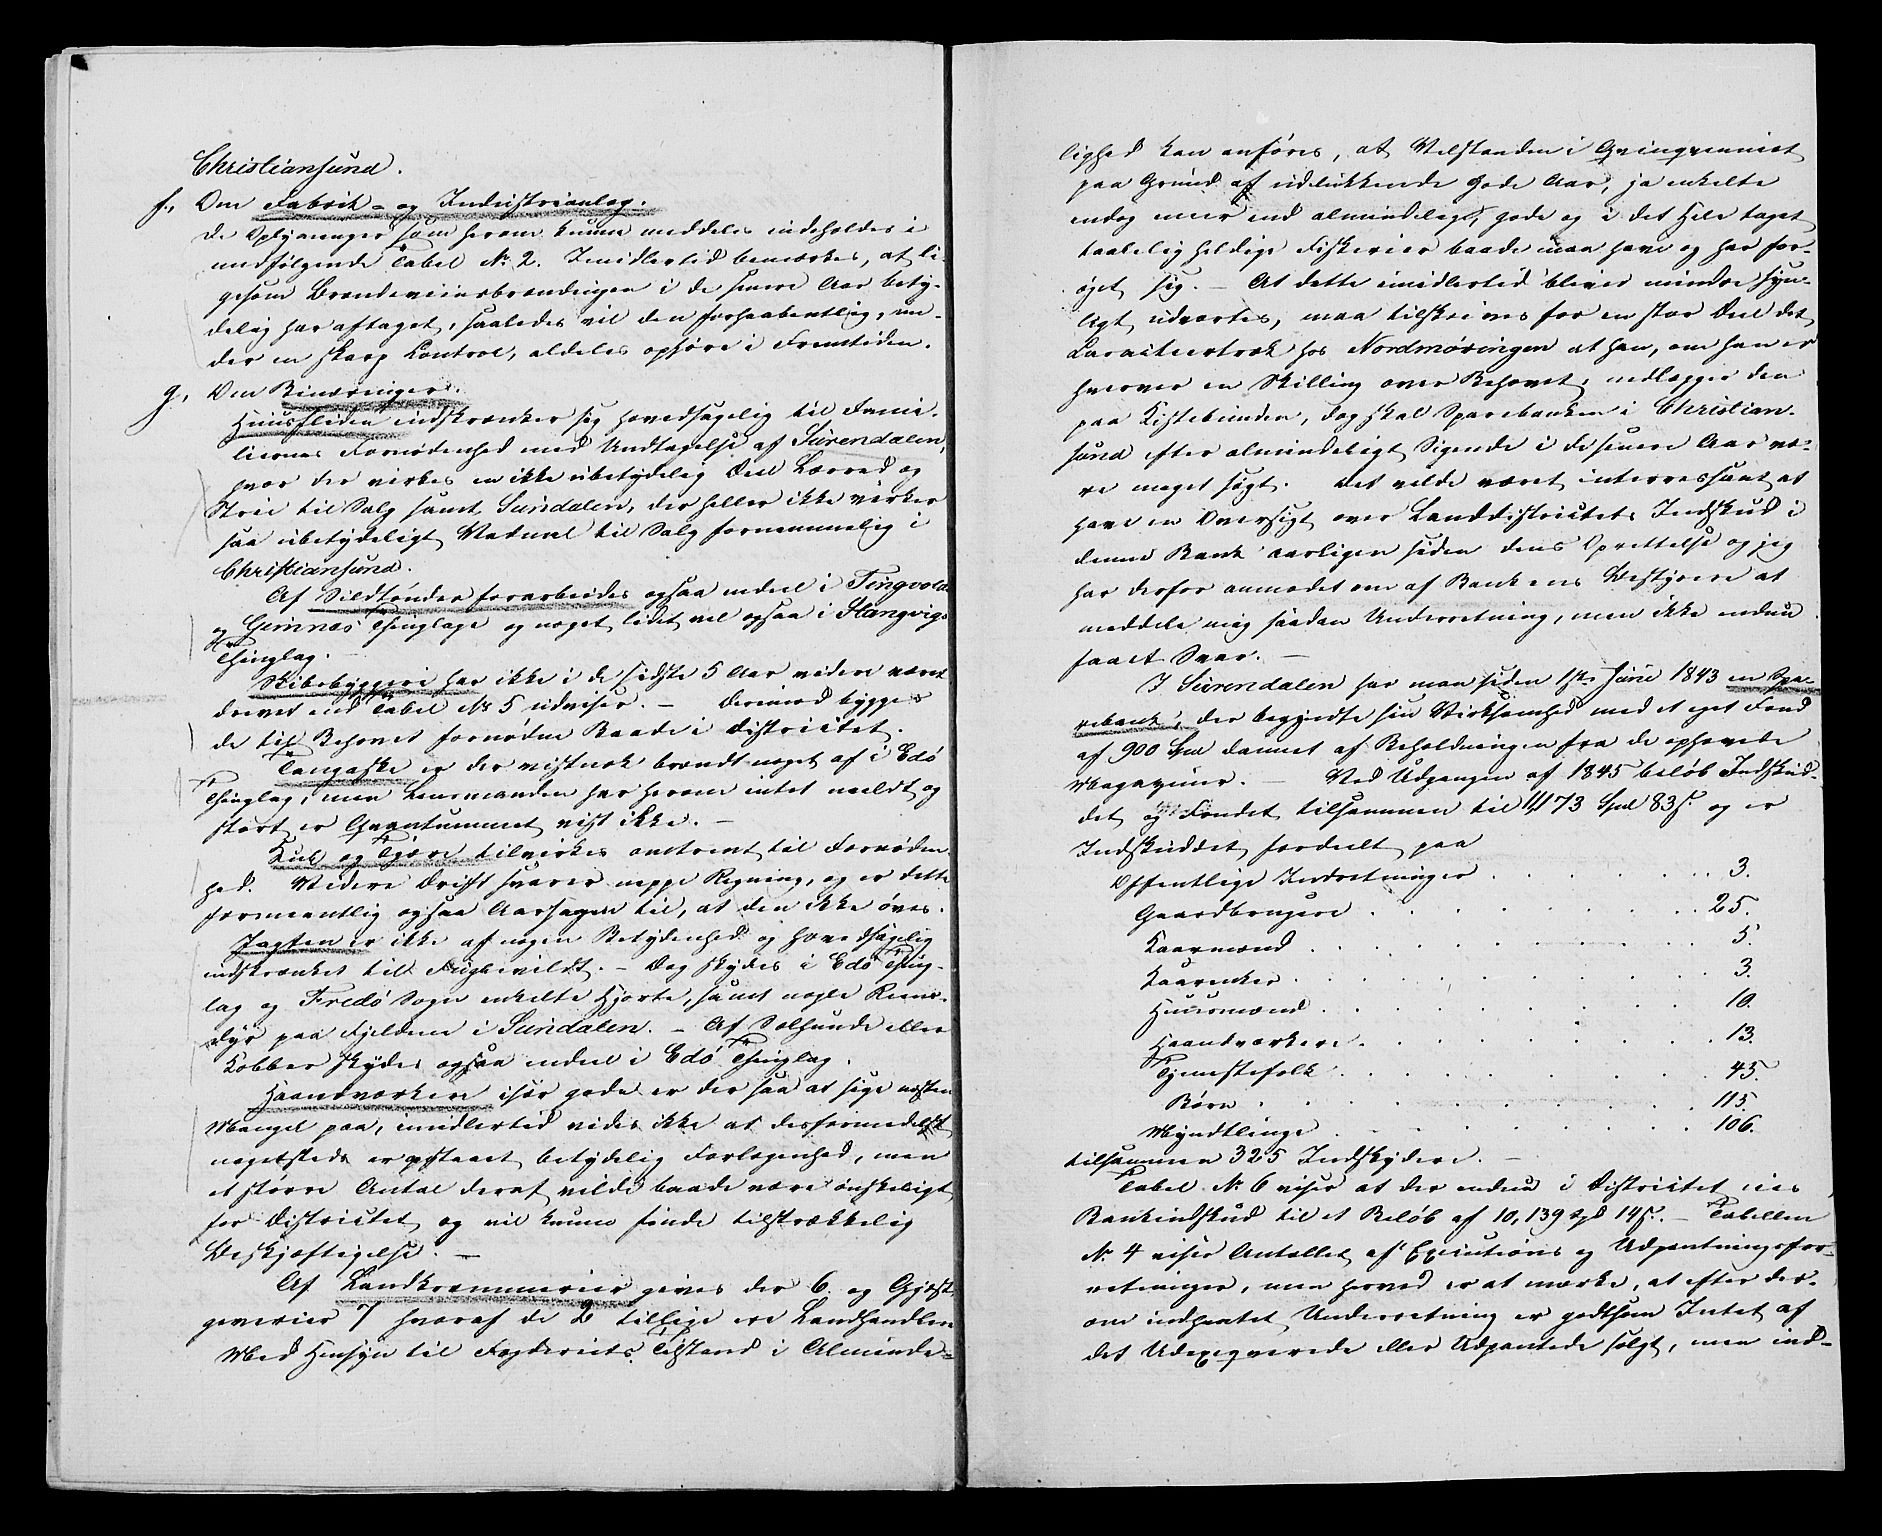 Christiansund.
f, Om Fabrik- og Industrianlæg.
De Oplysninger som herom kunne meddeles indeholdes i
medfølgende Tabel No 2. Imidlertid bemærkes, at li-
gesom Brændeviinsbrændingen i de senere Aar bety-
delig har aftaget, saaledes vil den forhaabentlig, un-
der en skarp Control, aldeles ophøre i Fremtiden.
g, Om Binæringer.
Huusfliden indskrænker sig hovedsagelig til Fami-
liernes Fornødenhed med Undtagelse af Surendalen,
hvor der virkes en ikke ubetydelig Deel Lærred og
Strie til Salg samt Sundalen, der heller ikke virker
saa ubetydeligt Vadmel til Salg fornemmelig i
Christiansund.
Af Sildtønder forarbeides ogsaa endeel i Tingvold
og Gimnæs Thinglage og noget lidet vel ogsaa i Stangvigs
Thinglag.
Skibsbyggeri har ikke i de sidste 5 Aar videre været
drevet end Tabel No 5 udviser. — Derimod bygges
de til Behovet fornødne Baade i Districtet.
Tangaske er der vistnok brændt noget af i Edø
Thinglag, men Lensmanden har herom intet meldt og
stort er Qvantummet vist ikke. —
Kul og Tjære tilvirkes omtrent til Fornøden-
hed. Videre Drift svarer neppe Regning, og er dette
formeentlig ogsaa Aarsagen til, at den ikke øves.
Jagten er ikke af nogen Betydenhed og hovedsagelig
indskrænket til Fuglevildt. — Dog skydes i Edø Thing-
lag og Fredø Sogn enkelte Hjorte, samt nogle Reens-
dyr paa Fjeldene i Sundalen. — Af Sælhunde eller
Kobber skydes ogsaa endeel i Edø Thinglag.
Haandværkere især gode er der saa at sige næsten
Mangel paa, imidlertid vides ikke at desformedelst
nogetsteds er opstaaet betydelig Forlegenhed, men
et større Antal deraf vilde baade være ønskeligt
for Districtet og vil kunne finde tilstrækkelig
Beskjæftigelse. —
Af Landkræmmerier gives der 6. og Gjæst-
geverier 7 hvoraf de 2 tillige ere Landhandlere
Med Hensyn til Fogderiets Tilstand i Alminde-
lighed kan anføres, at Velstanden i Qvinqvenniet
paa Grund af udelukkende gode Aar, ja enkelte
endog mere end almindeligt gode og i det Hele taget
taalelig heldige Fiskerier baade maa have og har for-
øget sig. — At dette imidlertid bliver mindre syn-
ligt udvortes, maa tilskrives for en stor Deel det
Caracteertræk hos Nordmøringen at han, om han er
hverver en Skilling over Behovet, nedlægger den
paa Kistebunden, dog skal Sparebanken i Christian-
sund efter almindeligt Sigende i de senere Aar væ-
re meget søgt. Det vilde været interressant at
have en Oversigt over Landdistrictets Indskud i
denne Bank aarligen siden dens Oprettelse og jeg
har derfor anmodet om af Bankens Bestyrere at
meddele mig saadan Underretning, men ikke endnu
faaet Svar. —
I Surendalen har man siden 1ste Junii 1843 en Spa-
rebank, der begyndte sin Virksomhed med et eget Fond
af 900 Spd dannet af Beholdningen fra de ophævede
Magaziner. — Ved Udgangen af 1845 beløb Indskud-
det og Fondet tilsammen til 4473 Spd 83 s. og er
Indskuddet fordeelt paa
Offentlige Indretninger . . . . . . . 3.
Gaardbrugere . . . . . . . 25.
Kaarmænd . . . . . . . 5.
Kaarenker . . . . . . . 3.
Huusmænd . . . . . . . 10.
Haandværkere . . . . . . . 13.
Tjenestefolk . . . . . . . 45.
Børn . . . . . . . 115.
Myndtlinge . . . . . . . 106.
tilsammen 325 Indskydere. —
Tabel No 6 viser at der endnu i Districtet eies
Bankindskud til et Beløb af 10,139 Spd 14 s. — Tabellen
No 4 viser Antallet af Executions og Udpantningsfor-
retninger, men herved er at mærke, at efter der-
om indhentet Underretning er godtsom Intet af
det Udexeqverede eller Udpantede solgt, men ind-